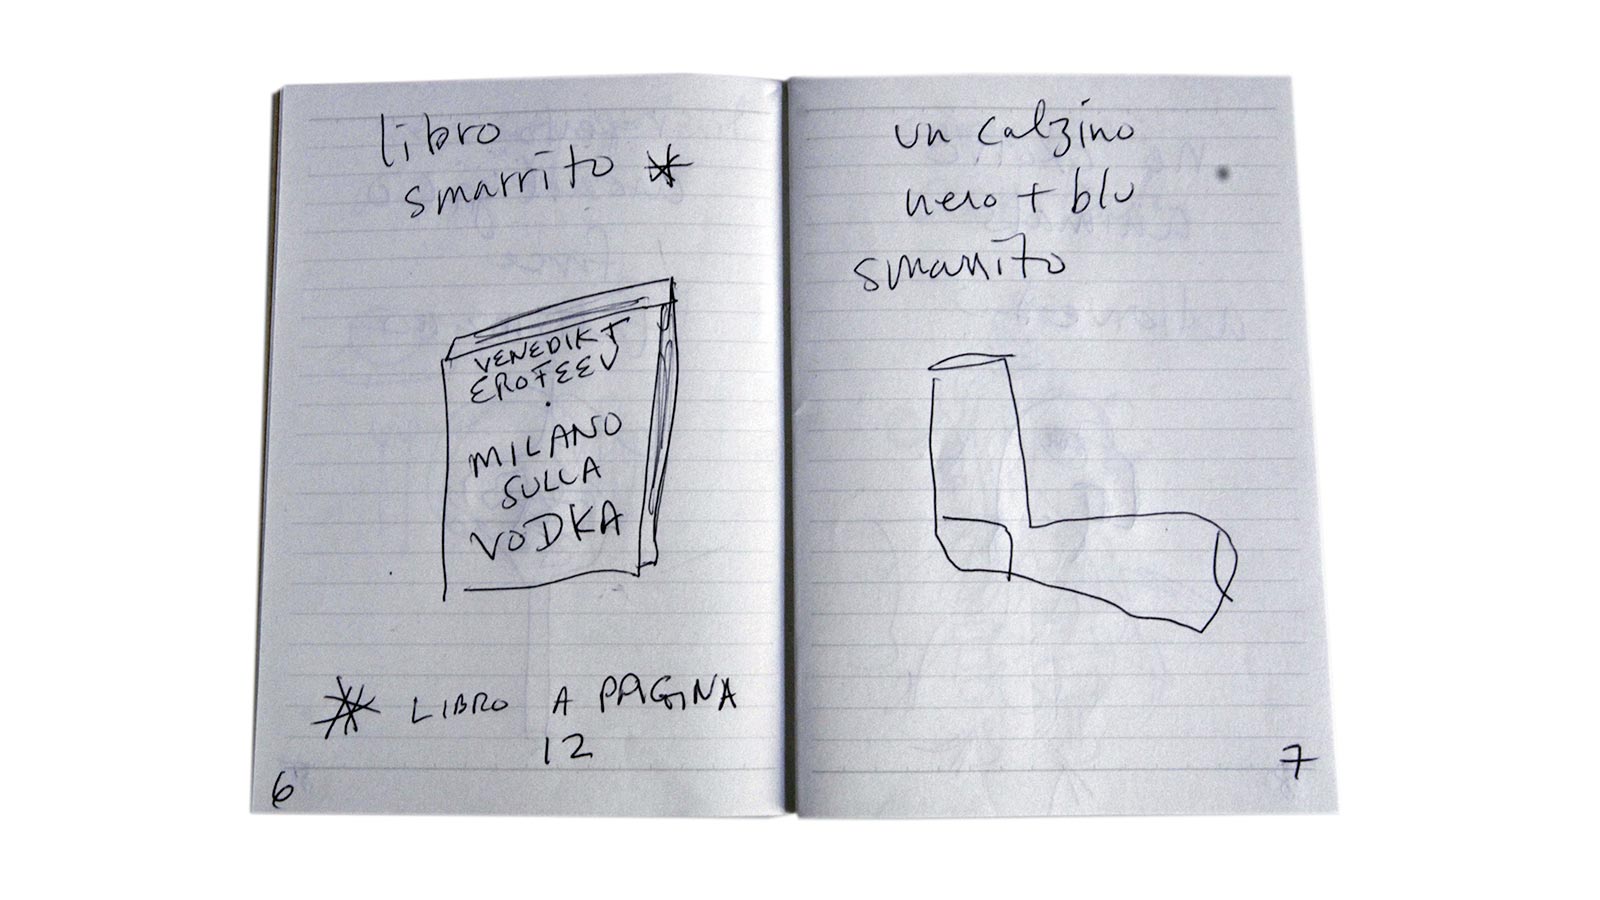 libro
smarrito *
VENEDIKT
EROFEEV
MILANO
SULLA
VODKA
* LIBRO A PAGINA
12
6
un calzino
nero + blu
smarrito
7